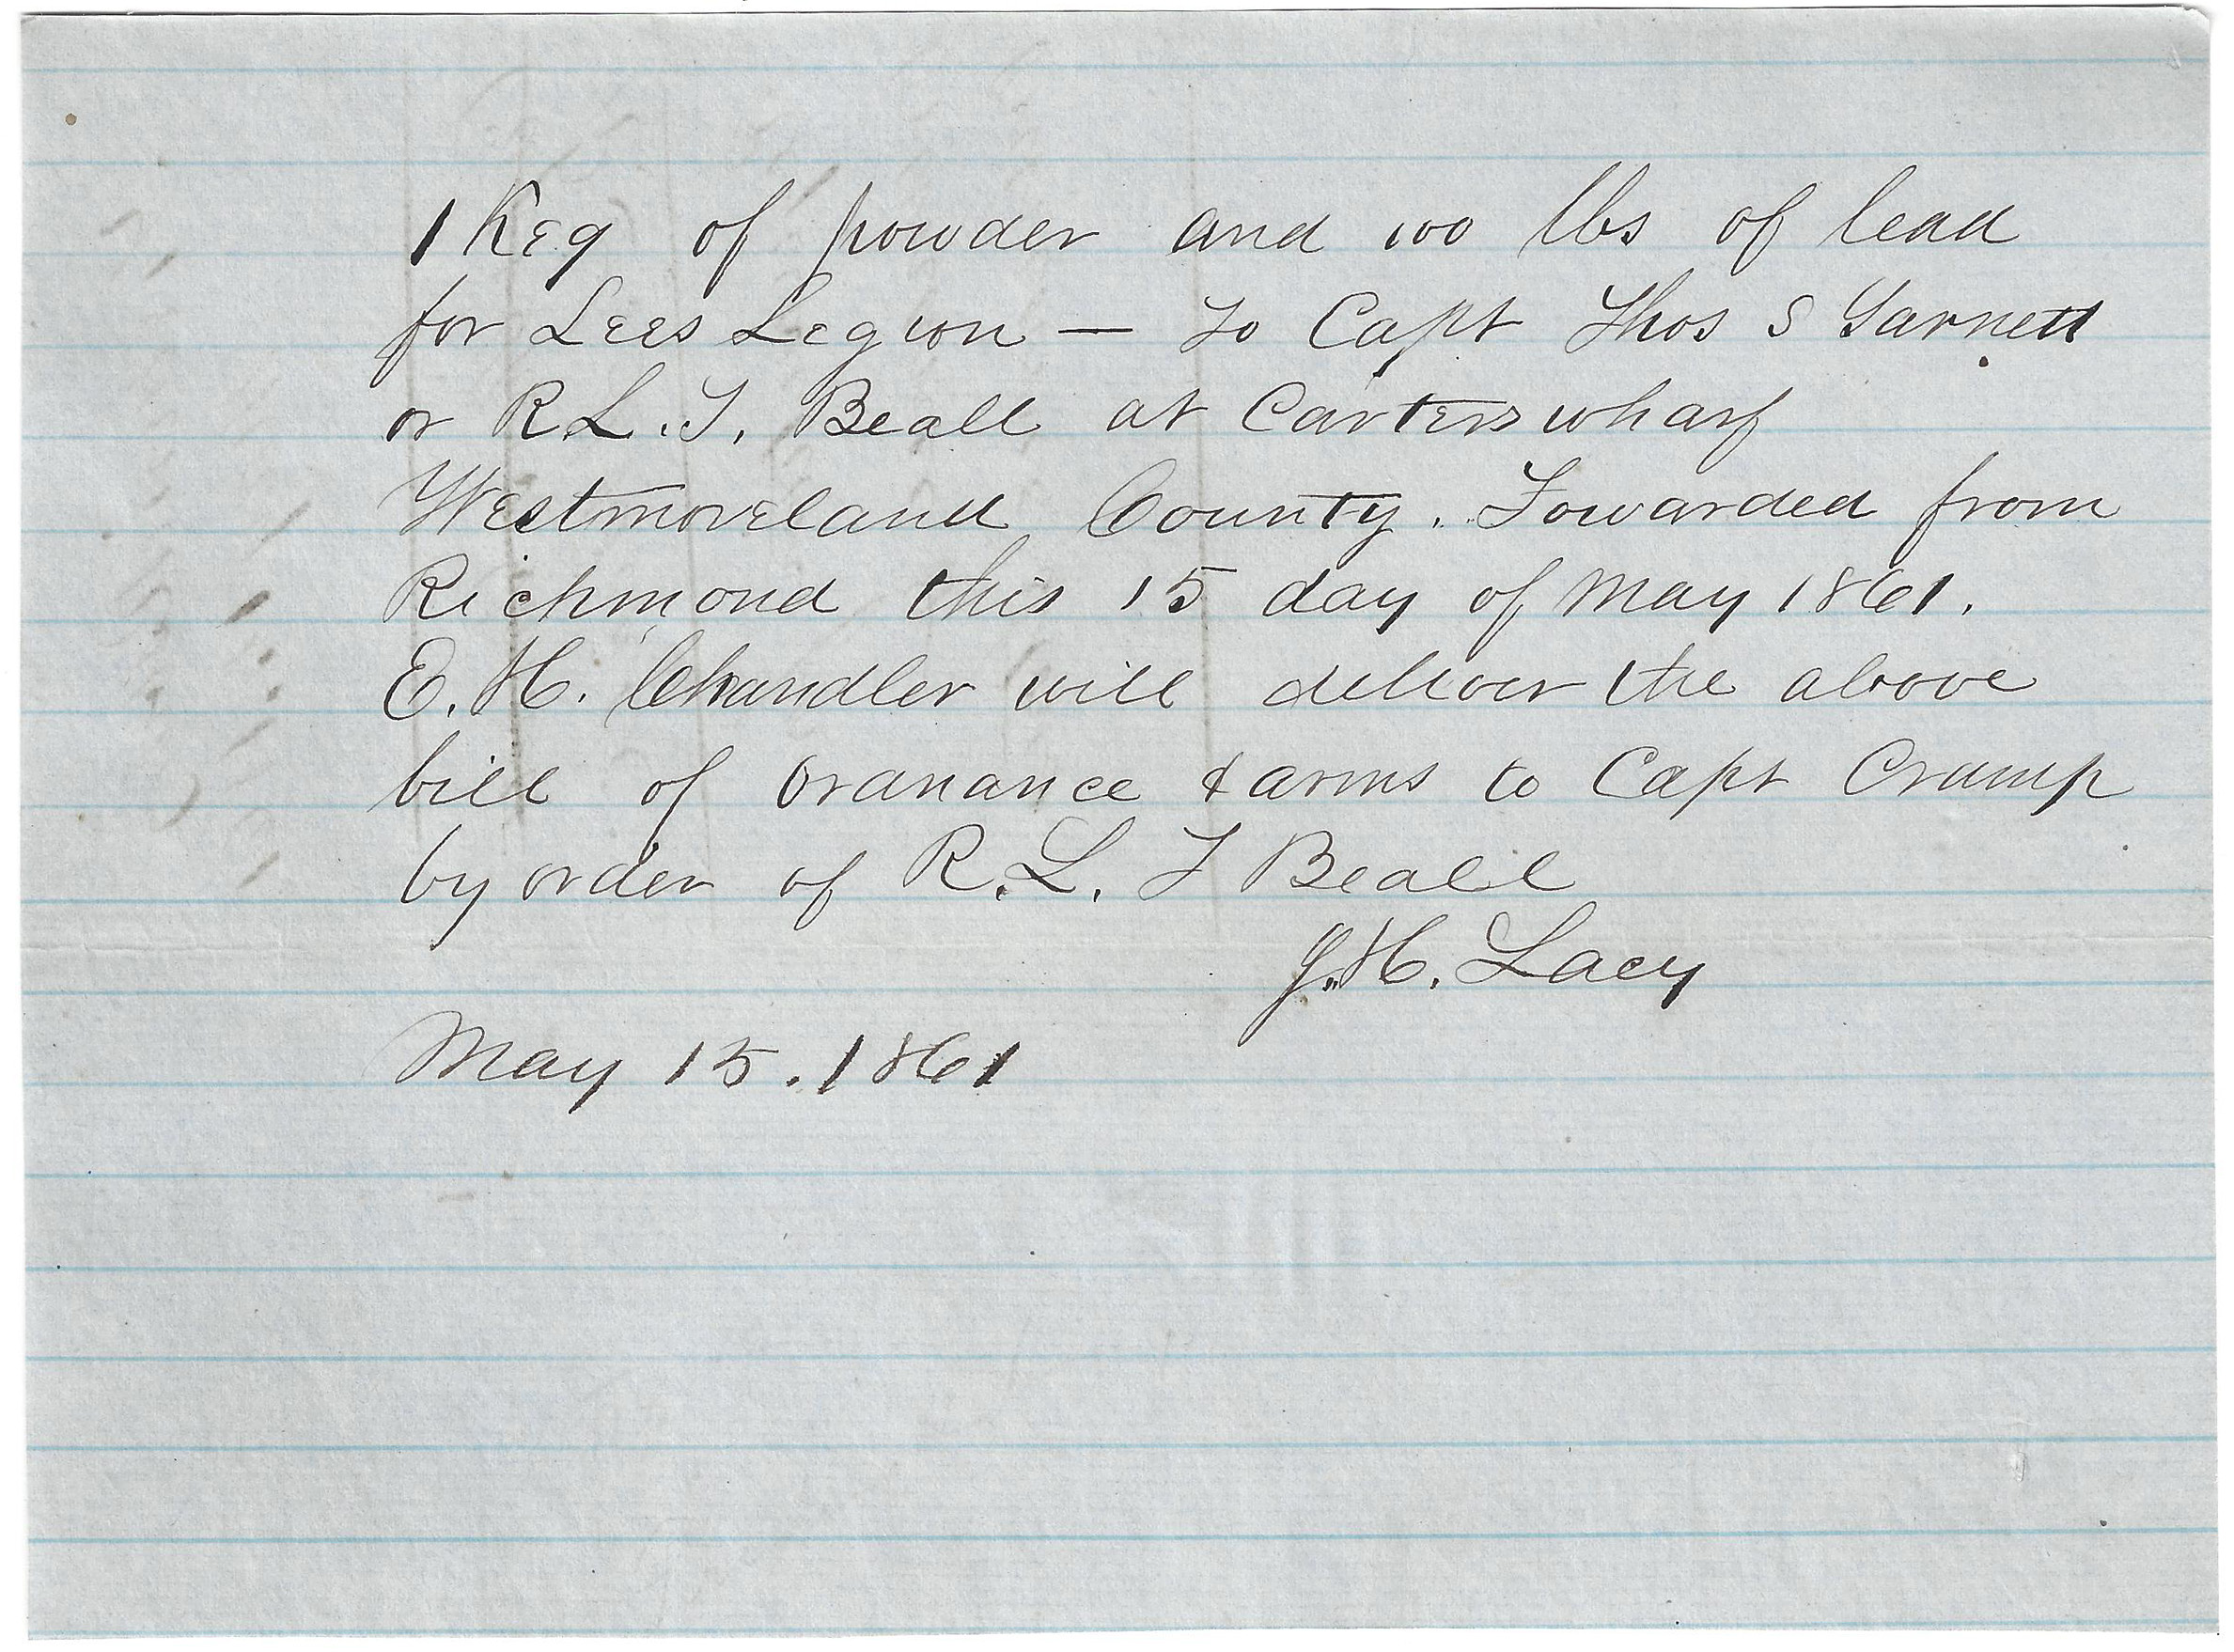 1 Keg of powder and 100 lbs of lead
for Lees Legion — To Capt Thos S Garnett
or R L. T. Beall at Carters wharf
Westmoreland County. Fowarded from
Richmond this 15 day of May 1861.
E. H. Chandler will deliver the above
bill of Ordnance & arms to Capt Crump
by order of R. L. T Beall
J. H. Lacy
May 15. 1861